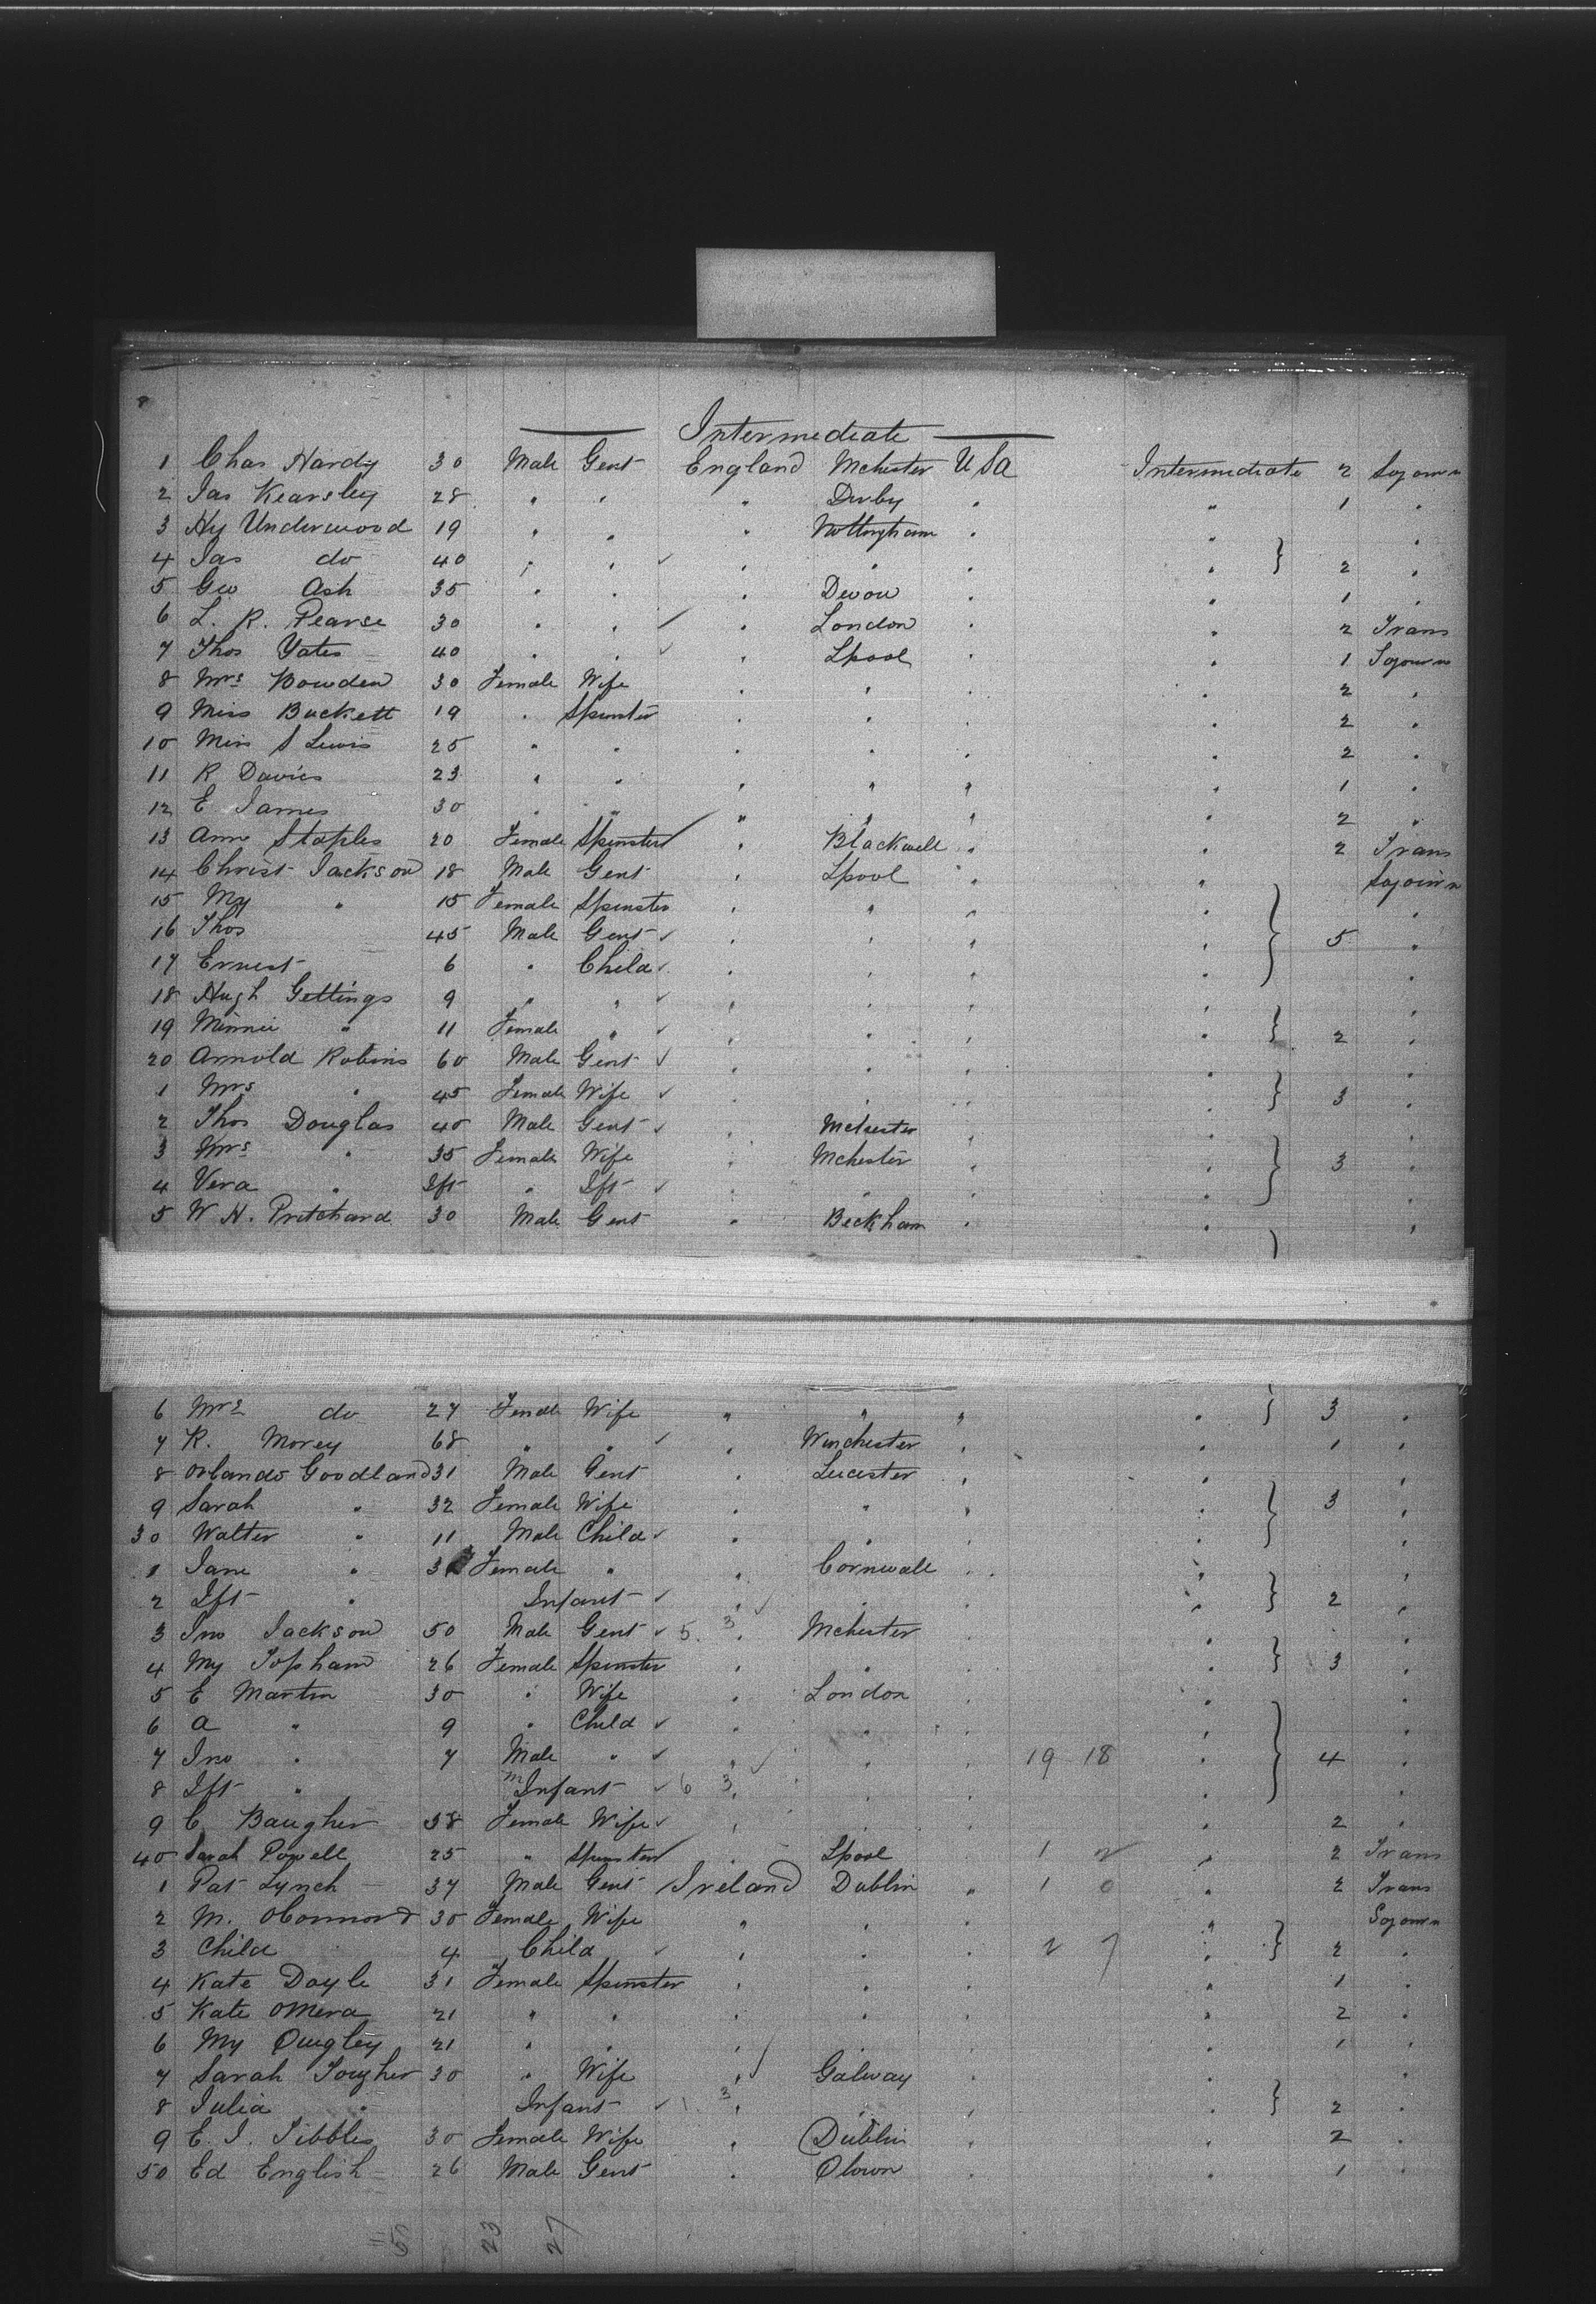 Intermediate
1 Chas Hardy 30 Male Gent England Mchester USA Intermediate 2 Sojourn
2 Jas Kearsley 28 " " " Derby " " 1 "
3 Hy Underwood 19 " " " Nottingham " " "
4 Jas do 40 " " " " " " } 2 "
5 Geo Ash 35 " " " Devon " " 1 "
6 L. R. Pearse 30 " " " London " " 2 Trans
7 Thos Yates 40 " " " Lpool " " 1 Sojourn
8 Mrs Bowden 30 Female Wife " " " " 2 "
9 Miss Buckett 19 " Spinster " " " " 2 "
10 Miss S Lewis 25 " " " " " " 2 "
11 R Davies 23 " " " " " " 1 "
12 E James 30 " " " " " " 2 "
13 Ann Staples 20 Female Spinster " Blackwell " " 2 Trans
14 Christ Jackson 18 Male Gent " Lpool " " Sojourn
15 My " 15 Female Spinster " " " " "
16 Thos 45 Male Gent " " " " } 5 "
17 Ernest 6 " Child " " " " "
18 Hugh Gettings 9 " " " " " " "
19 Minnie " 11 Female " " " " " } 2 "
20 Arnold Robins 60 Male Gent " " " "
1 Mrs " 45 Female Wife " " " " } 3 "
2 Thos Douglas 40 Male Gent " Mchester " " "
3 Mrs " 35 Female Wife " Mchester " " } 3 "
4 Vera " Ift " Ift " " " " "
5 W H. Pritchard 30 Male Gent " Beckham " " "
6 Mrs do 27 Female Wife " " " " } 3 "
7 R. Morey 68 " " " Winchester " " 1 "
8 Orlando Goodland 31 Male Gent " Leicester " " "
9 Sarah " 32 Female Wife " " " " } 3 "
30 Walter " 11 Male Child " " " "
1 Jane " 3 Female " " Cornwall " " "
2 Ift " Infant " " " " } 2 "
3 Jno Jackson 50 Male Gent 5 3 " Mchester " " "
4 My Topham 26 Female Spinster " " " " } 3 "
5 E Martin 30 " Wife " London " " "
6 A " 9 " Child " " " " "
7 Jno " 7 Male " " " " 19 18 " } 4 "
8 Ift " m Infant 6 3 " " " " "
9 C Baugher 38 Female Wife " " " " 2 "
40 Sarah Powell 25 " Spinster " Lpool 1 2 " 2 Trans
1 Pat Lynch 37 Male Gent Ireland Dublin " 1 0 " 2 Trans
2 M. OConnor 30 Female Wife " " " " Sojourn
3 Child 4 Child " " " 2 7 " } 2 "
4 Kate Doyle 31 Female Spinster " " " " 1 "
5 Kate OMera 21 " " " " " " 2 "
6 My Quigley 21 " " " " " " 1 "
7 Sarah Tougher 30 " Wife " Galway " " "
8 Julia " Infant 1 3 " " " " } 2 "
9 E. J. Tibbles 30 Female Wife " Dublin " " 2 "
50 Ed English 26 Male Gent " Clown " " 1 "
23 27